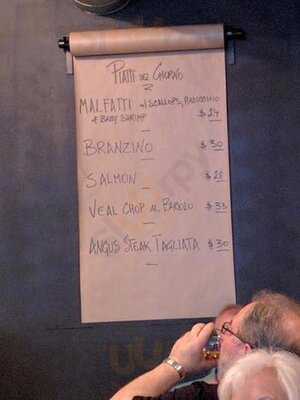 PIATTI DEL GIORNO
MALFATTI w/ SCALLOPS, RADICCHIO
& BABY SHRIMP $24
BRANZINO $30
SALMON $28
VEAL CHOP AL BAROLO $33
ANGUS STEAK TAGLIATA $30